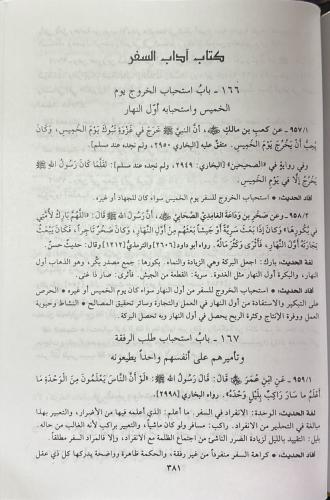 كتاب آداب السفر
١٦٦ - بابُ استحباب الخروج يوم
الخميس واستحبابه أوّل النهار
٩٥٧/١ - عن كعبِ بن مالكٍ ﷺ، أَنَّ النبيَّ ﷺ خَرَجَ في غَزْوَةِ تَبُوكَ يَوْمَ الخَمِيس، وَكَانَ
يُحِبُّ أَنْ يَخْرُجَ يَوْمَ الخَمِيسِ. متفقٌ عليه [البخاري ٢٩٥٠، ولم نجده عند مسلم].
وفي رواية في «الصحيحين» [البخاري: ٢٩٤٩، ولم نجده عند مسلم]: لقَلَّمَا كَانَ رَسُولُ اللهِ ﷺ
يَخْرُجُ إِلَّا في يَوْمِ الخَمِيسِ.
أفاد الحديث: استحباب الخروج للسفر يوم الخميس سواء كان للجهاد أو غيره.
٩٥٨/٢ - وعن صخْرِ بن وَدَاعَةَ الغامِدِيِّ الصَّحابيِّ ، أَنَّ رسُولَ الله ﷺ قَالَ: «اللَّهُمَّ بَارِكْ لأُمَّتي
في بُكُورِهَا» وكَان إِذا بعثَ سَرِيَّةً أَوْ جيشاً بعَثَهُم مِنْ أَوَّلِ النَّهَارِ، وَكَان صَخْرٌ تَاجِراً، فَكَانَ يَبْعَثُ
تِجارَتهُ أَوَّلَ النَّهار، فَأَثْرى وَكَثُرَ مَالُهُ. رواه أبو داود [٢٦٠٦] والترمذيُّ [١٢١٢] وقال: حديثٌ حسن.
لغة الحديث: بارك: اجعل البركة وهي الزيادة والنماء. بكورها: جمع مصدر بكّر، وهو الذهاب أول
النهار، والبكرة أول النهار مثل الغدوة. سرية: القطعة من الجيش. فأثرى: صار ذا غنى.
أفاد الحديث: • استحباب الخروج للسفر من أول النهار سواء كان يوم الخميس أو غيره • الحرص
على التبكير والاستفادة من أول النهار في العمل والتجارة وسائر تحقيق المصالح • النشاط وحيوية
العمل ووفرة الإنتاج وكثرة الربح يحصل في أول النهار وبه تحصل البركة.
١٦٧ - بابُ استحباب طلب الرفقة
وتأميرهم على أنفسهم واحداً يطيعونه
٩٥٩/١ - عَنِ ابْنِ عُمَرَ قَالَ: قَالَ رَسُولُ اللهِ ﷺ: «لَوْ أَنَّ النَّاسَ يَعْلَمُونَ مِنَ الْوَحْدَةِ مَا
أَعْلَمُ مَا سَارَ رَاكِبٌ بِلَيْلٍ وَحْدَهُ». رواه البخاري [٢٩٩٨].
لغة الحديث: الوحدة: الانفراد في السفر. ما أعلم: الذي أعلمه فيها من الأضرار، والتعبير بهذا
بالغة في التحذير من الانفراد. راكب: مسافر ولو كان ماشياً، والتعبير براكب لأنه الغالب في حاله.
بليل: التقييد بالليل لزيادة الضرر الناشئ من اجتماع الظلمة مع الانفراد، وإلا فالمراد السفر مطلقاً.
أفاد الحديث: • كراهة السفر منفرداً من غير رفقة، والحكمة ظاهرة وواضحة يدركها كل ذي عقل
٣٨١